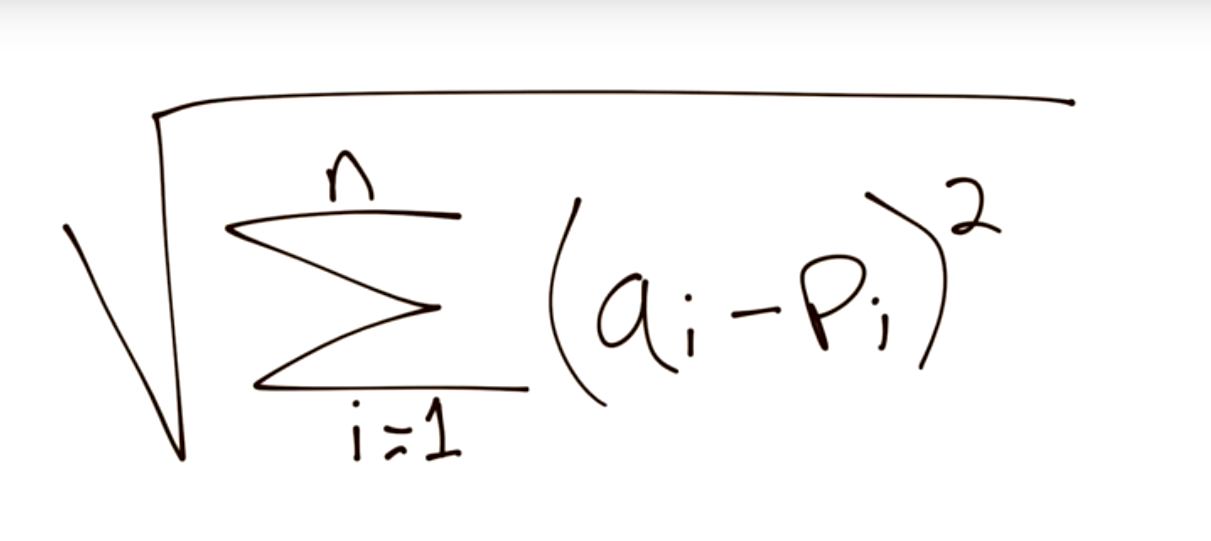 √(∑_{i=1}^{n} (a_i - p_i)^2)